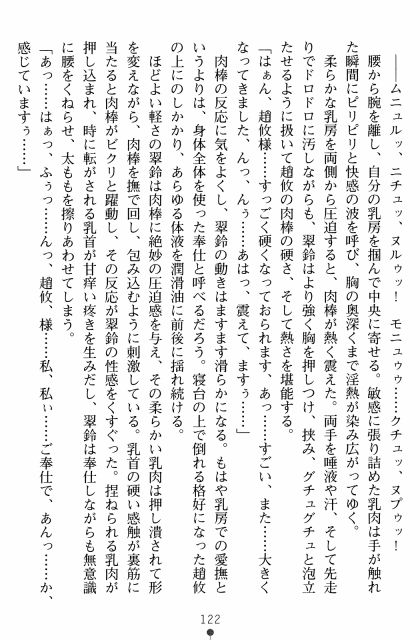 ――ムニュルッ、ニチュッ、ヌルゥッ！　モニュゥゥ……クチュッ、ヌプゥッ！
　腰から腕を離し、自分の乳房を掴んで中央に寄せる。敏感に張り詰めた乳肉は手が触れ
た瞬間にピリピリと快感の波を呼び、胸の奥深くまで淫熱が染み広がってゆく。
　柔らかな乳房を両側から圧迫すると、肉棒が熱く震えた。両手を唾液や汗、そして先走
りでドロドロに汚しながらも、翠鈴はより強く胸を押しつけ、挟み、グチュグチュと泡立
たせるように扱いて趙攸の肉棒の硬さ、そして熱さを堪能する。
「はぁん、趙攸様……すっごく硬くなっておられます、あっ……すごい、また……大きく
なってきました、んっ、んぅ……あはっ、震えて、ますぅ……」
　肉棒の反応に気をよくし、翠鈴の動きはますます滑らかになる。もはや乳房での愛撫と
いうよりは、身体全体を使った奉仕と呼べるだろう。寝台の上で倒れる格好になった趙攸
の上にのしかかり、あらゆる体液を潤滑油に前後に揺れ続ける。
　ほどよい軽さの翠鈴は肉棒に絶妙の圧迫感を与え、その柔らかい乳肉は押し潰されて形
を変えながら、肉棒を撫で回し、包み込むように刺激している。乳首の硬い感触が裏筋に
当たると肉棒がビクリと躍動し、その反応が翠鈴の性感をくすぐった。捏ねられる乳肉が
押し込まれ、時に転がされる乳首が甘痒い疼きを生みだし、翠鈴は奉仕しながらも無意識
に腰をくねらせ、太ももを擦りあわせてしまう。
「あっ……はぁっ、ふぅっ……んっ、趙攸、様……私、私ぃ……ご奉仕で、あんっ……か、
感じていますぅ……」
122